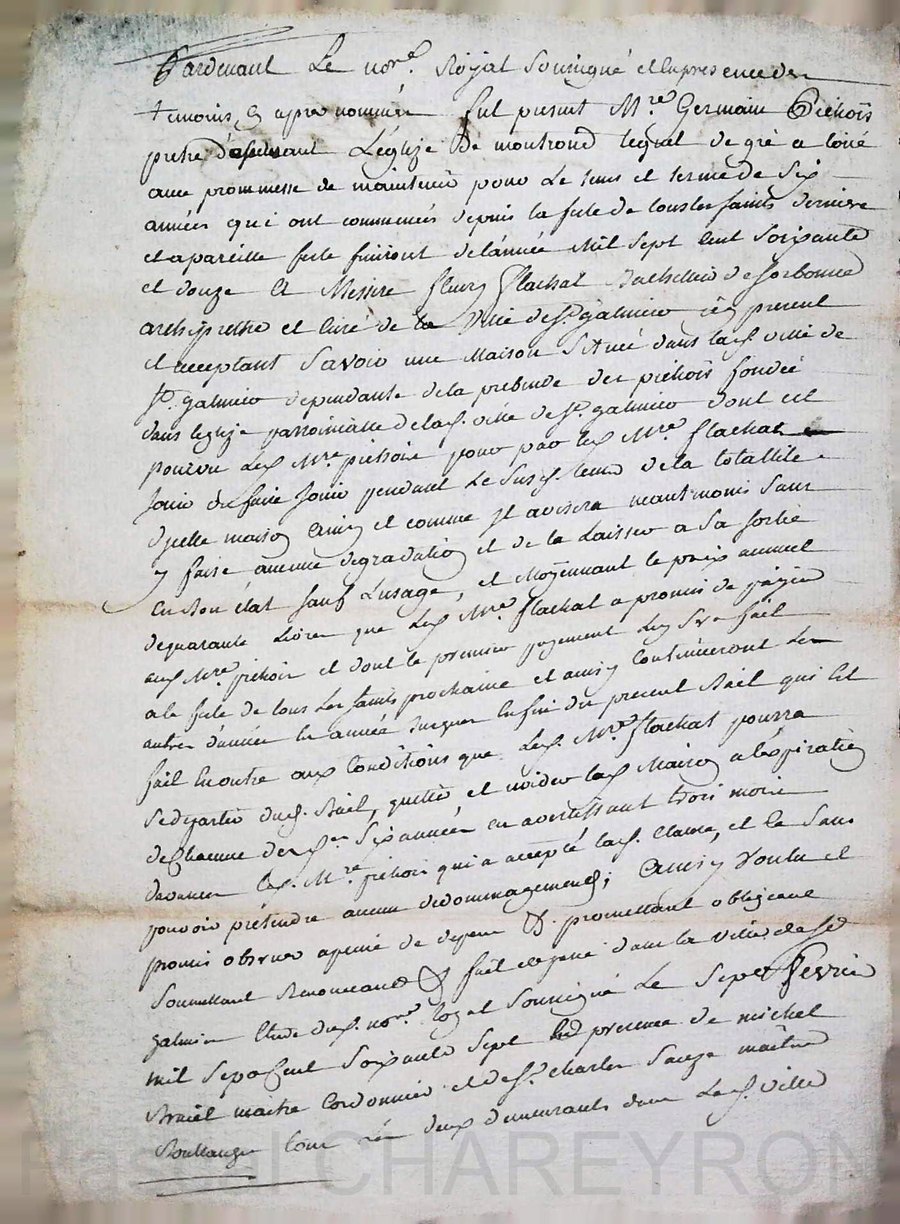 Pardevant Le nore. Royal Soussigné et En presence des
temoins, cy apres nommés fut present Mre. Germain Pichois
pretre desservant L'églize de montrond lequel de gré a loüé
avec prommesse de maintenir pour Le tems et terme de Six
années qui ont commencés depuis la fete de tous les saints derniere
et a pareille fete finiront de l'année Mil Sept Cent Soixante
et douze A Messire fleury flachat Bachellier de Sorbonne
archiprethre et Curé de la Ville de St. galmier icy present
et acceptant Savoir une Maison Scituée dans lad. ville de
St. galmier dependante de la prebende des pichois fondée
dans leglize parroissialle de lad. ville de St. galmier dont est
pourvu Led. Mre. pichois pour par led. Mre. flachat en
Jouir ou faire Jouir pendant Le Susd. tems de la totallité
d'yselle maison ainsy et comme Jl avisera neantmoins Sans
y faire aucune degradation et de la Laisser a Sa Sortie
en bon état Sauf L'usage, et Moÿennant le prix annuel
de quarante Livres que Led. Mre. flachat a promis de païer
aud. Mre. pichois et dont le premier payement Luy Sera fait
a la fete de tous Les Saints prochaine et ainsy Continueront Les
autres d'année En année Jusques En fin du present Bail qui Est
fait En outre aux Conditions que Led. Mre. flachat pourra
Se departir dud. Bail, quitter et vuider lad. Maison a l'expiration
de Chacune des d. Six années en avertissant trois mois
d'avance Led. Mre. pichois qui a accepté lad. Clause, et Ce Sans
pouvoir prétendre aucun dedommagement; ainsy Voulu et
promis observer a peine de depens & promettant obligeant
Soumettant Renonceant & fait et passé dans la Ville de St
galmier Etude dud. nore. royal Soussigné Le Sept fevrier
mil Sept Cent Soixante Sept En presence de michel
Brail maitre Cordonnier et de Sr. charles Sauze maître
Boullanger tous Les deux demeurants dans Lad. Ville
Pascal CHAREYRON